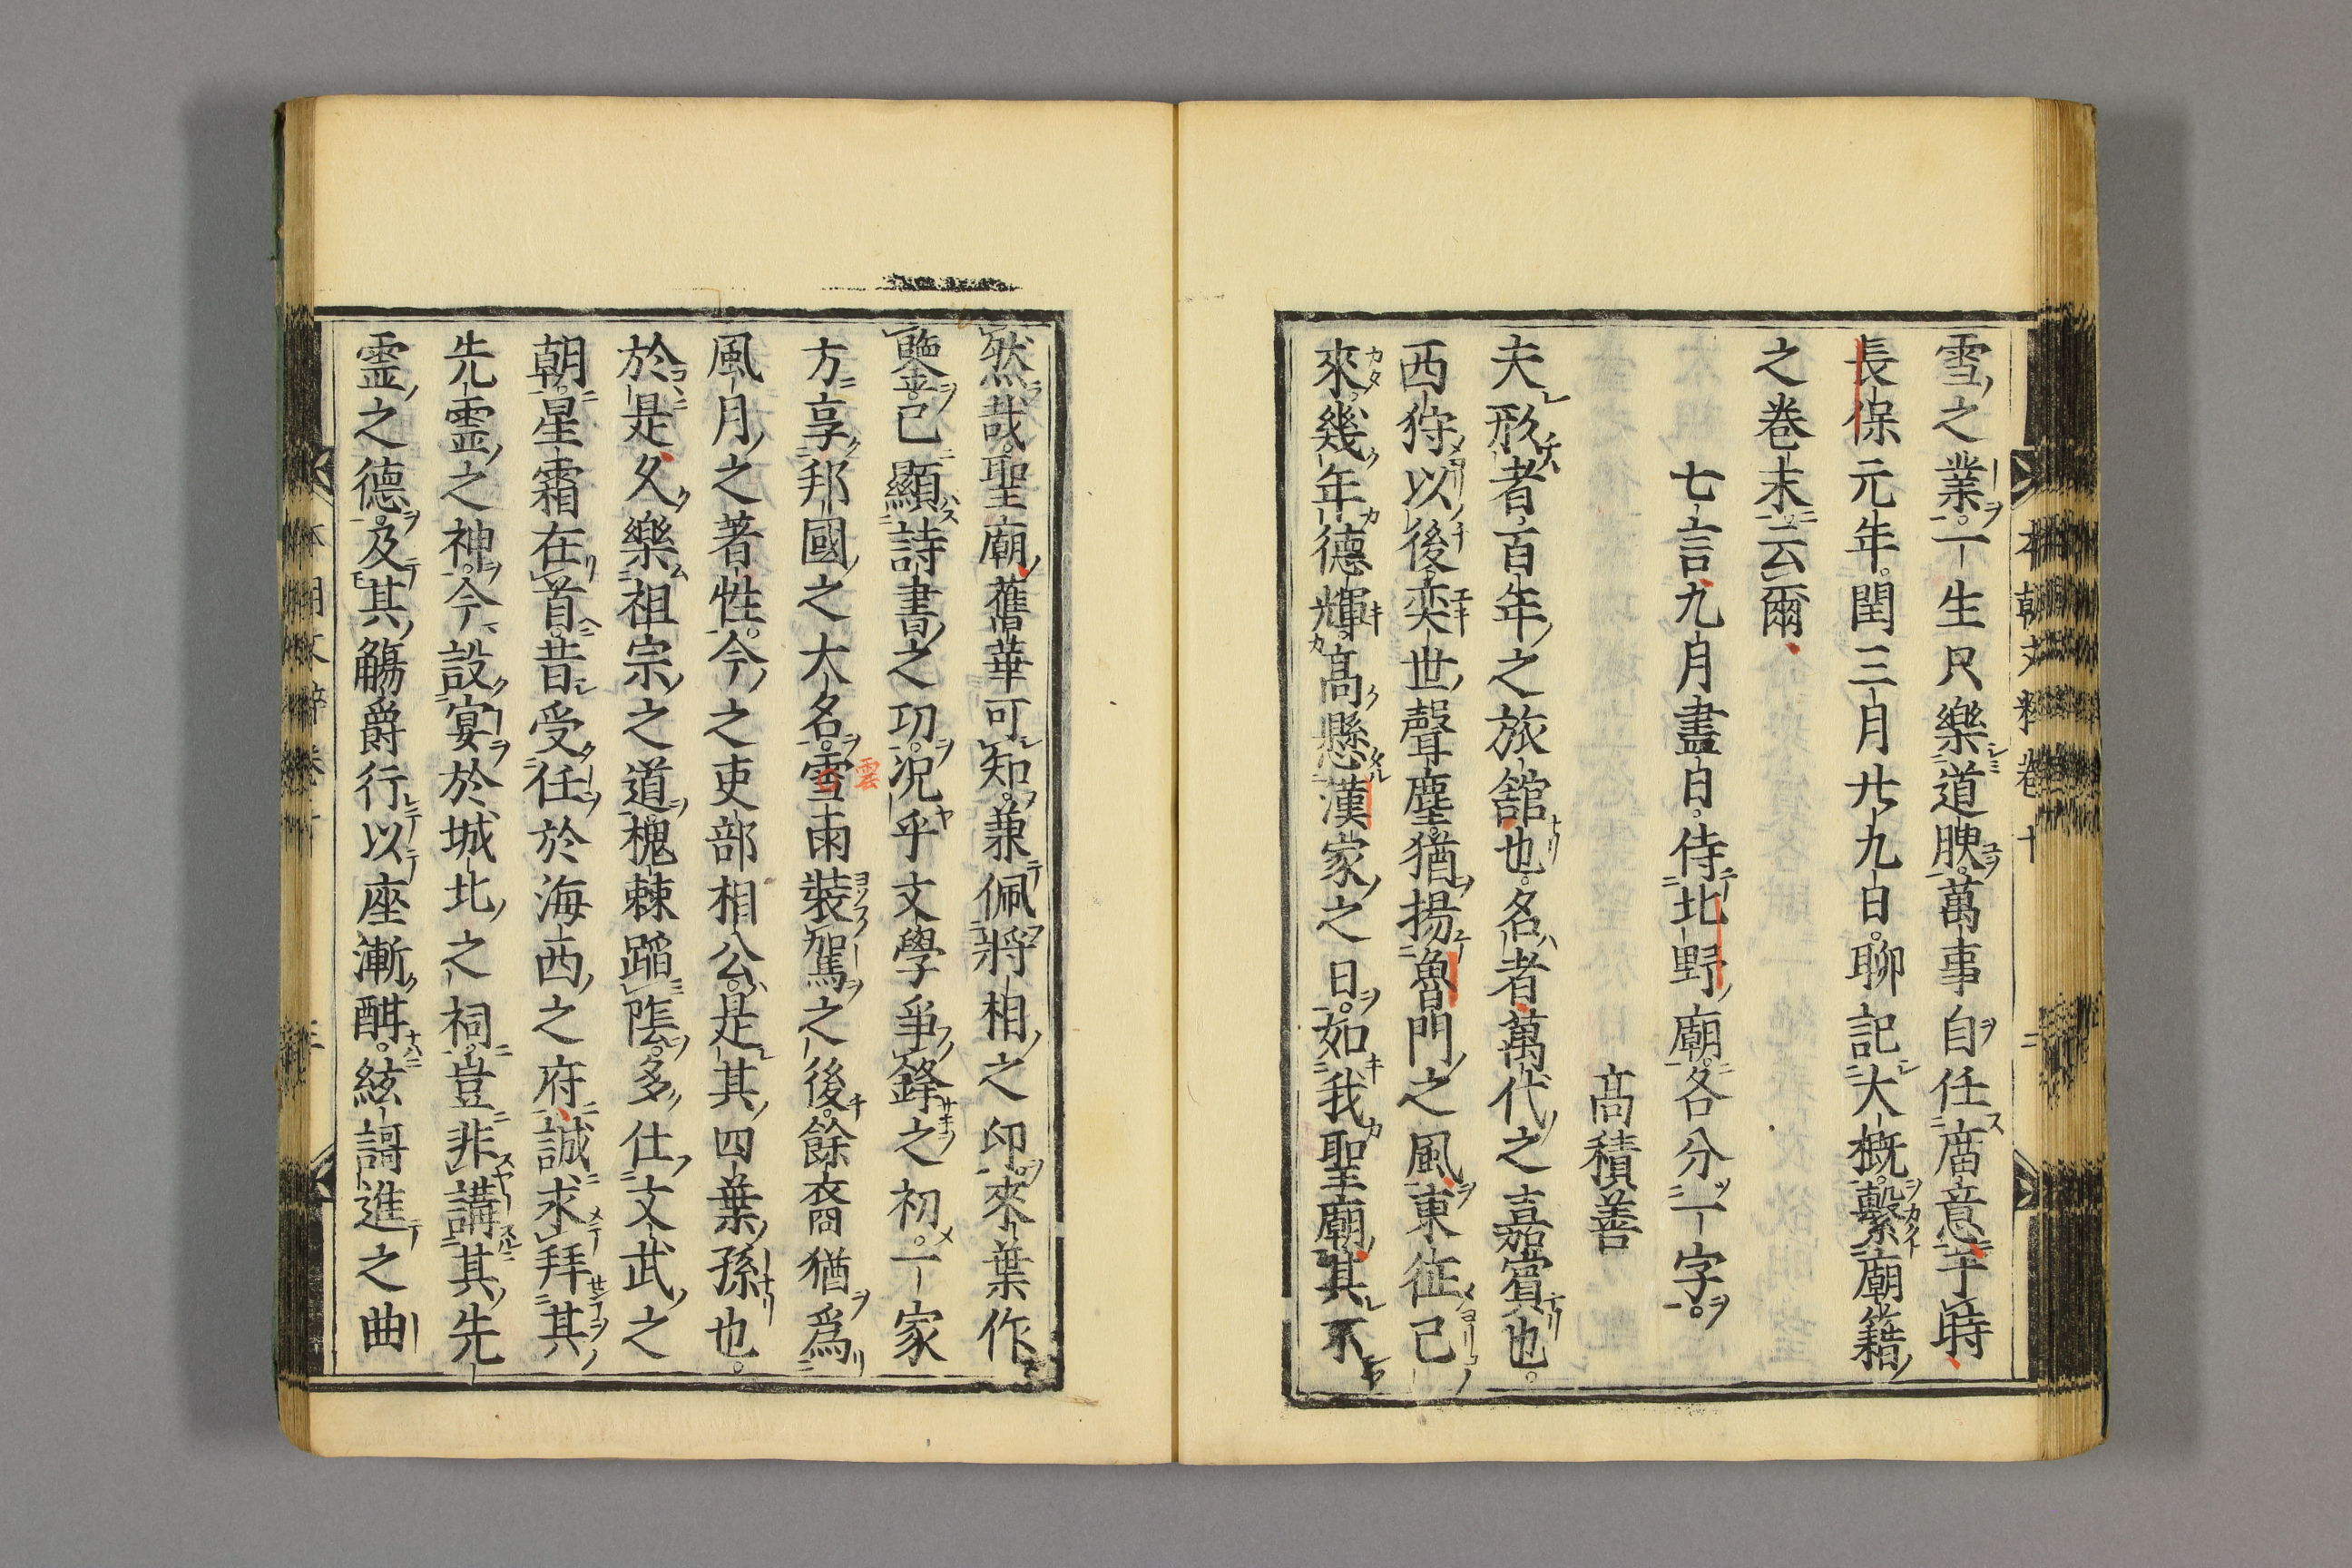 雪之業一生只樂道腴萬事自任當意于時
長保元年閏三月廿九日聊記大概繫廟籍
之卷末云爾
七言九月盡日侍北野廟各分一字
高積善
夫形者百年之旅舘也名者萬代之嘉賓也
西狩以後奕世聲塵猶揚魯門之風東征已
來幾年德輝高懸漢家之日如我聖廟其不
然哉聖廟舊華可知兼佩將相之印來葉作
鹽已顯詩書之功況乎文學爭鋒之初一家
方享邦國之大名雪雨裝駕之後餘裔猶爲
雲
風月之著性今之吏部相公是其四葉孫也
於是久樂祖宗之道槐棘蹈隂多仕文武之
朝星霜在首昔受任於海西之府誠求拜其
先霊之神今設宴於城北之祠豈非講其先
霊之德及其觴爵行以座漸酣絃謌進之曲